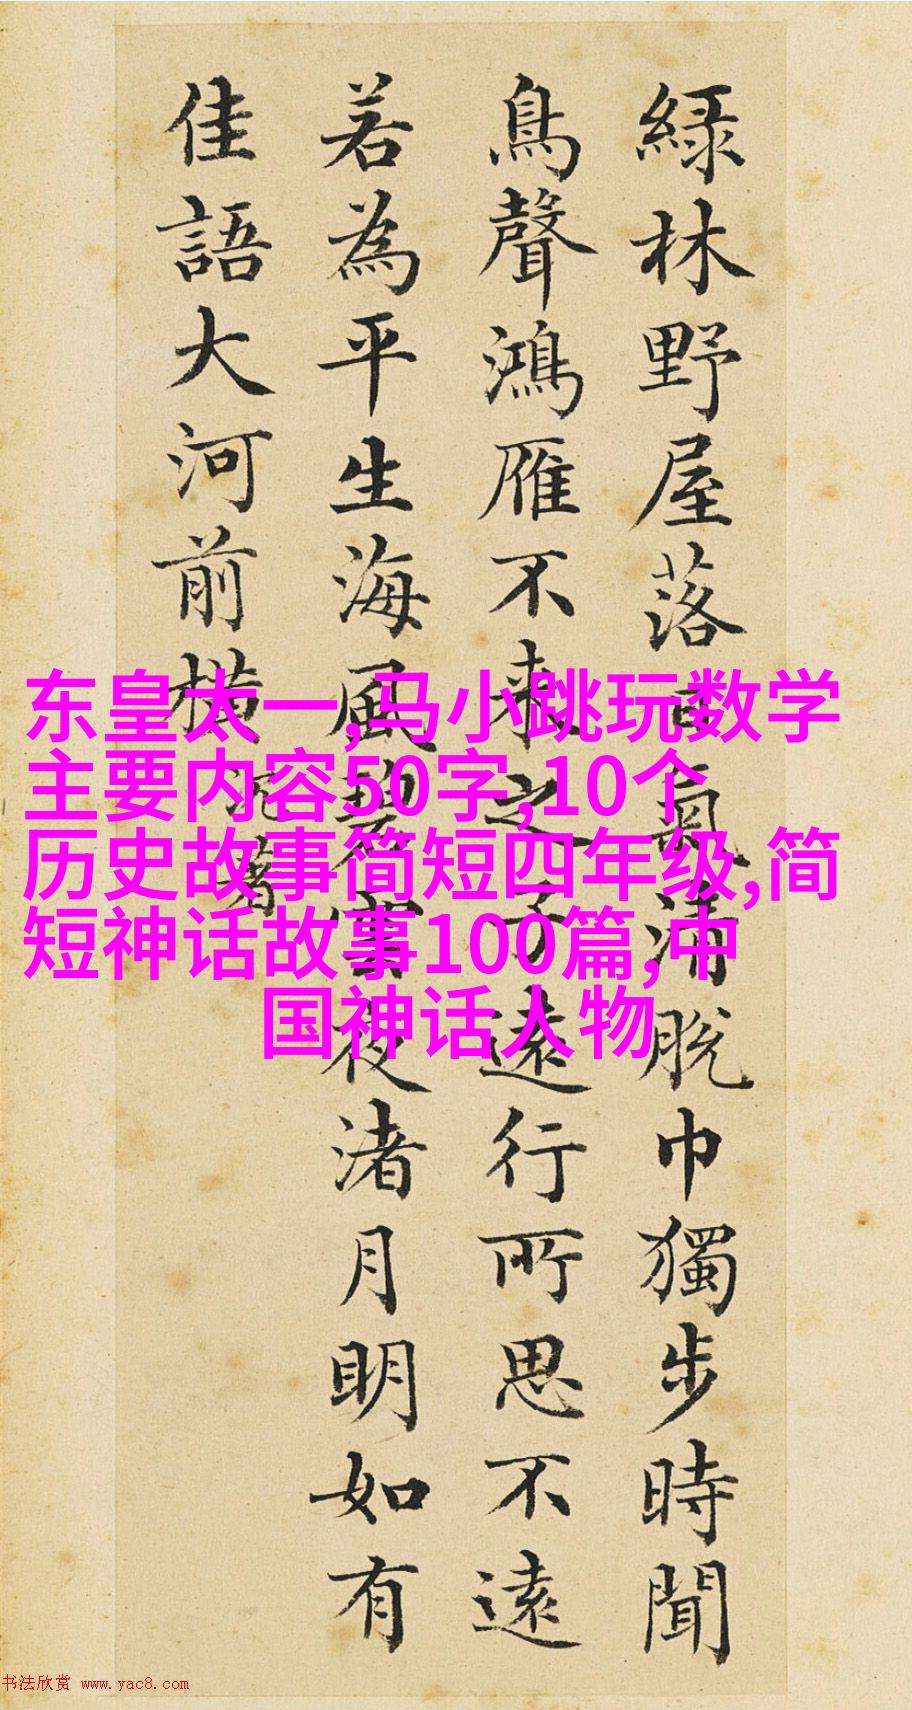 綠林野屋落日氣清脫巾獨步時聞
鳥聲鴻雁不來之子遠行所思不遠
若為平生海風碧雲夜渚月明如有
佳語大河前橫
沈著
东皇太一,马小跳玩数学
主要内容50字,10个
历史故事简短四年级,简
短神话故事100篇,中
国神话人物
书法欣赏 www.yac8.com